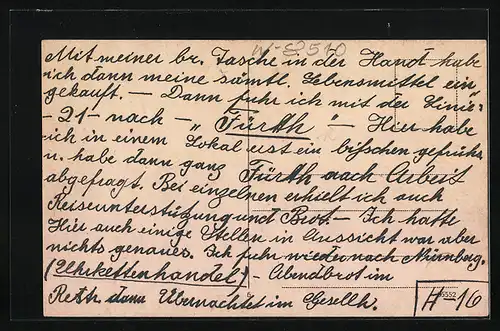 W-S2510
Mit meiner br. Tasche in der Hand habe
ich dann meine sämtl. Lebensmittel ein
gekauft. — Dann fuhr ich mit der Linie
-21- nach - "Fürth" - Hier habe
ich in einem Lokal erst ein bißchen gefrühs.
u. habe dann ganz Fürth nach Arbeit
abgefragt. Bei einzelnen erhielt ich auch
Reiseunterstützung und Brot. — Ich hatte
Hier auch einige Stellen in Aussicht war aber
nichts genaues. Ich fuhr wieder nach Nürnberg.
(Uhrkettenhandel) - Abendbrot im
Restr. dann Übernachtet im Gesellh.
H 16
5552